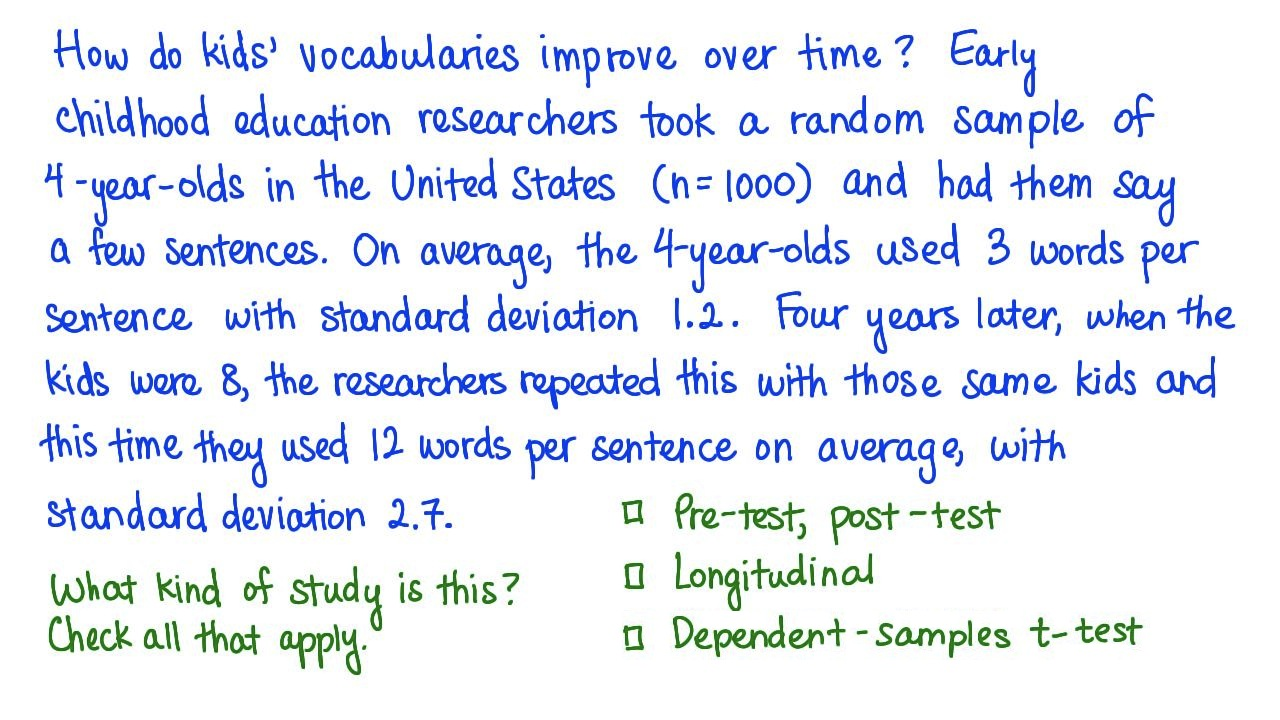 How do kids' vocabularies improve over time? Early
childhood education researchers took a random sample of
4-year-olds in the United States (n=1000) and had them say
a few sentences. On average, the 4-year-olds used 3 words per
sentence with standard deviation 1.2. Four years later, when the
kids were 8, the researchers repeated this with those same kids and
this time they used 12 words per sentence on average, with
standard deviation 2.7.
What kind of study is this?
Check all that apply.
□ Pre-test, post-test
□ Longitudinal
□ Dependent-samples t-test